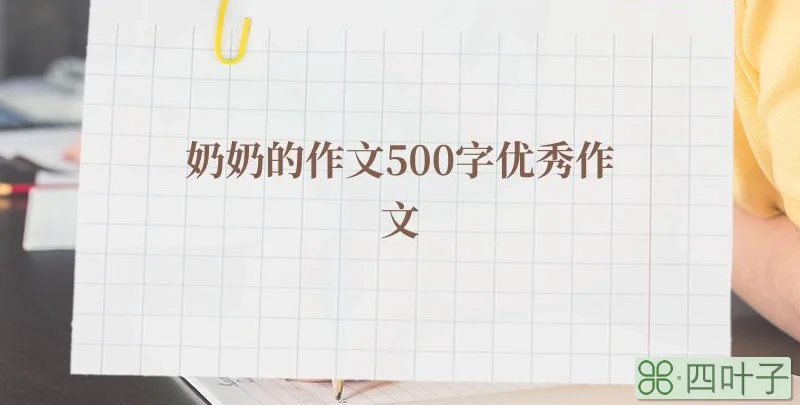 奶奶的作文500字优秀作
文
四叶子